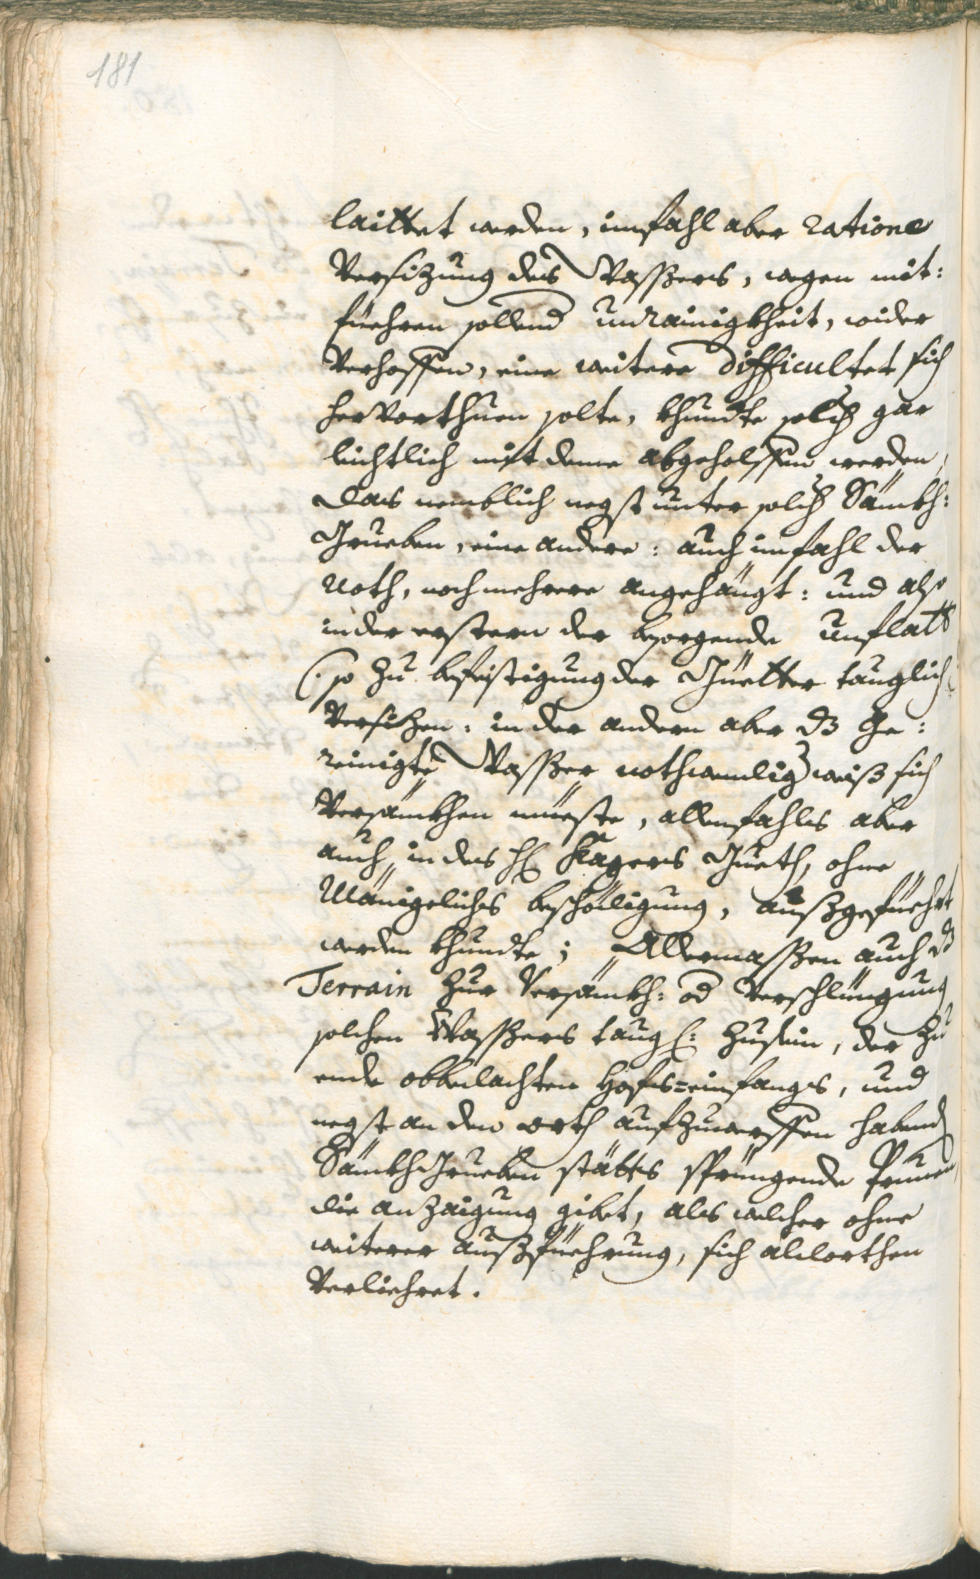 181
laittet werden, imfahl aber ratione
Versizung des Wassers, wegen mit:
füehren sollend unrainigkheit, wider
Verhoffen, eine weitere difficultet sich
hervorthuen solte, khundte solch gar
leichtlich mit deme abgeholffen werden,
das nemblich negst unter solch Sämkh:
Grueben, eine andere: auch imfahl der
Noth, noch mehrere angehängt: und also
in der erstern der besorgende unflatt
(: so zu befeistigung der Güetter tauglich:)
Versizen: in der andern aber dz Ge:
reinigte Wasser nothwendig weis sich
Versämkhen müeste, allenfahls aber
auch, in des H: Kagers Gueth, ohne
Mänigeliches beschediligung, ausgeführt
werden khundte; Allermassen auch dz
Terrain zur Versämkh: od Verschlingung
solchen Wassers taugl: zu sein, der zu
ende obbedachten Hofs=einfangs, und
negst an den orth aufzuwerffen habend
Sämkh Grueben stätts springende Prunen
die anzaigung gibet, als welcher ohne
weiterer ausführung, sich aldorthen
Verliehret.